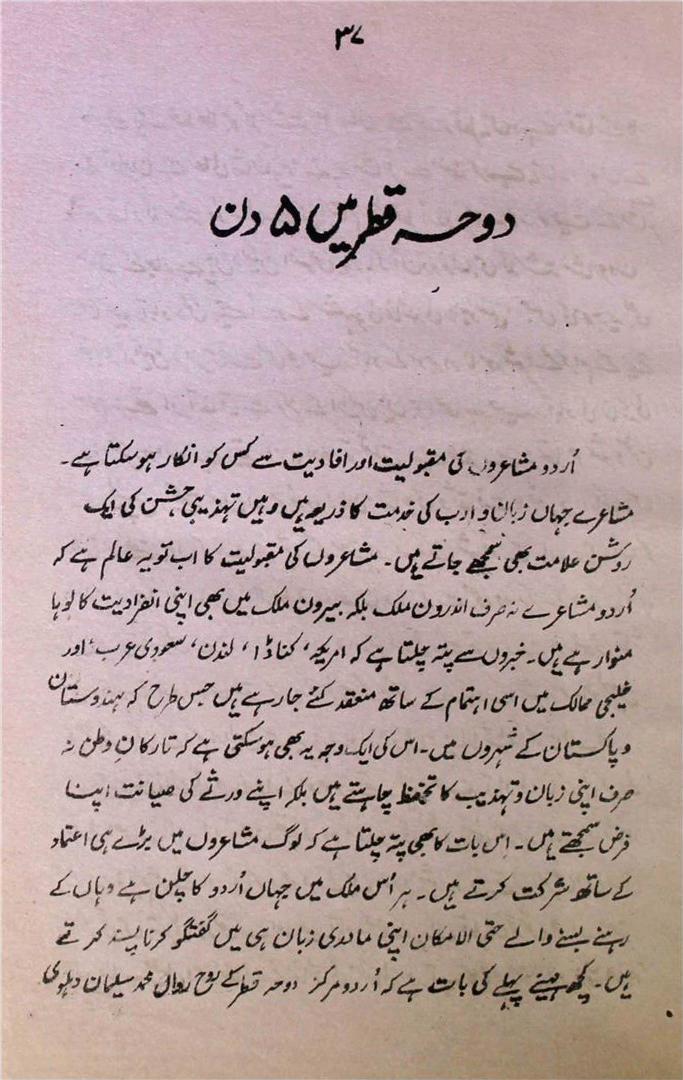 ۳۷
دوحہ قطر میں ۵ دن
اُردو مشاعروں کی مقبولیت اور افادیت سے کس کو انکار ہوسکتا ہے۔
مشاعرے جہاں زبان و ادب کی خدمت کا ذریعہ ہیں وہیں تہذیبی جشن کی ایک
روشن علامت بھی سمجھے جاتے ہیں۔ مشاعروں کی مقبولیت کا اب تو یہ عالم ہے کہ
اُردو مشاعرے نہ صرف اندرون ملک بلکہ بیرون ملک میں بھی اپنی انفرادیت کا لوہا
منوار ہے ہیں۔ خبروں سے پتہ چلتا ہے کہ امریکہ، کناڈا، لندن، سعودی عرب، اور
خلیجی ممالک میں اسی اہتمام کے ساتھ منعقد کئے جارہے ہیں جس طرح کہ ہندوستان
و پاکستان کے شہروں میں۔ اس کی ایک وجہ یہ بھی ہوسکتی ہے کہ تارکانِ وطن نہ
صرف اپنی زبان و تہذیب کا تحفظ چاہتے ہیں بلکہ اپنے ورثے کی صیانت اپنا
فرض سمجھتے ہیں۔ اِس بات کا بھی پتہ چلتا ہے کہ لوگ مشاعروں میں بڑے ہی اعتماد
کے ساتھ شرکت کرتے ہیں۔ ہر اُس ملک میں جہاں اُردو کا چلن ہے وہاں کے
رہنے بسنے والے حتی الامکان اپنی مادری زبان ہی میں گفتگو کرنا پسند کرتے
ہیں۔ کچھ مہینے پہلے کی بات ہے کہ اُردو مرکز دوحہ قطر کے روح رواں محمد سلیمان دہلوی